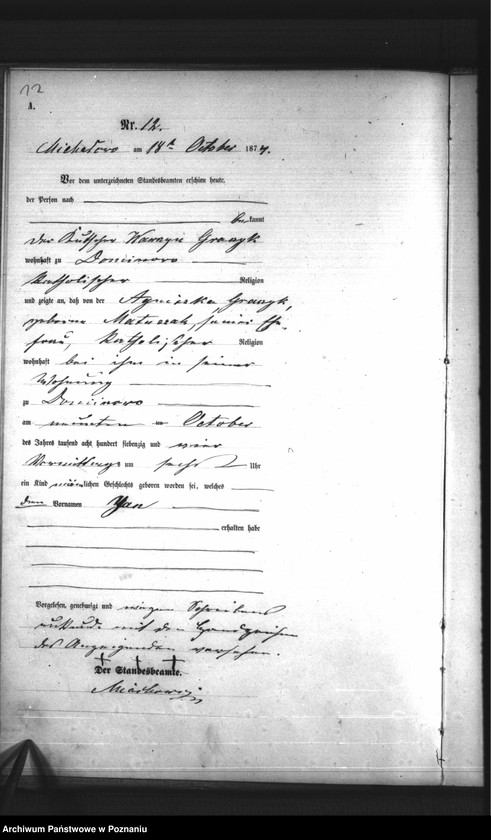 12
A.
Nr. 12.
Michałowo am 18t October 1874.
Vor dem unterzeichneten Standesbeamten erschien heute,
der Person nach
bekannt
der Kutscher Wawrzyn
wohnhaft zu Dominowo
katholischer Religion
und zeigte an, daß von der Agnieszka
geborene seiner Ehe-
frau, katholischer Religion
wohnhaft bei ihm in seiner
Wohnung
zu Dominowo
am neunten October
des Jahres tausend acht hundert siebenzig und vier
Vormittags um sechs Uhr
ein Kind männlichen Geschlechts geboren worden sei, welches
den Vornamen Jan
erhalten habe
Vorgelesen, genehmigt und wegen Schreibens
unkunde mit dem Handzeichen
des Anzeigenden versehen.
Der Standesbeamte.
Archiwum Państwowe w Poznaniu